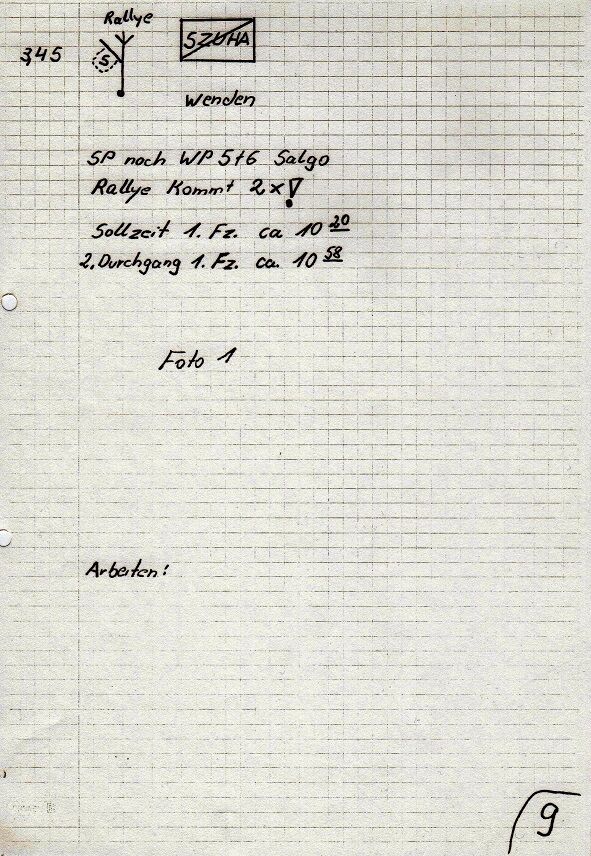 Rallye
3,45
5
SZUHA
Wenden
SP noch WP 5+6 Salgo
Rallye Kommt 2x!
Sollzeit 1. Fz. ca 10 20
2. Durchgang 1. Fz. ca. 10 58
Foto 1
Arbeiten:
9